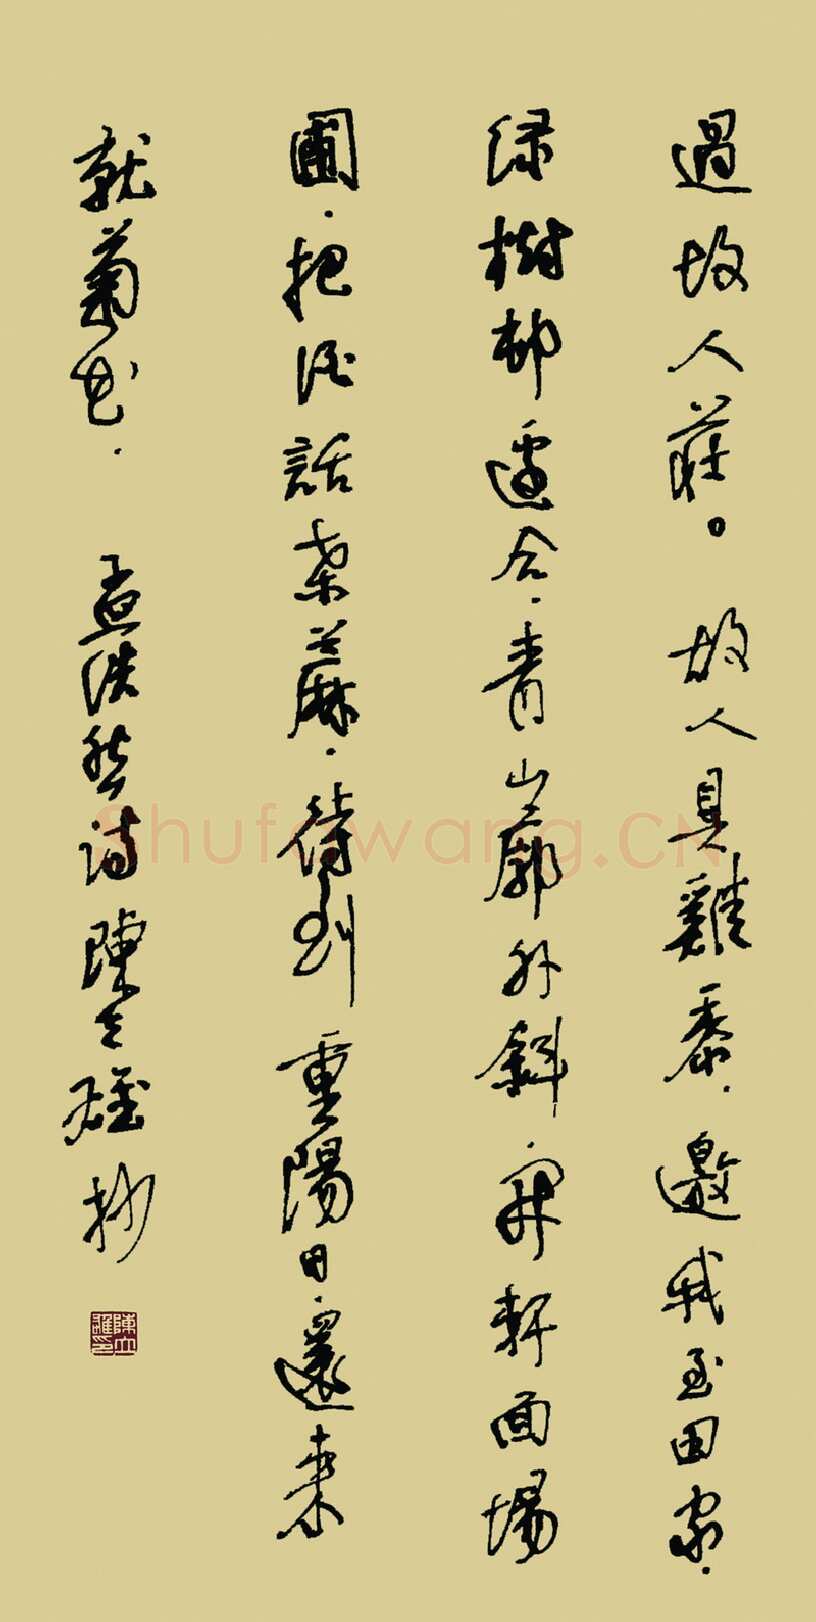 過故人莊。故人具雞黍.邀我至田家.
绿樹邨邊合.青山廓外斜.開軒面場
圃.把酒話桑蔴.待到重陽日.還來
就菊花.孟浩然诗陳立雄抄
陳立雄印
Shufawang.CN